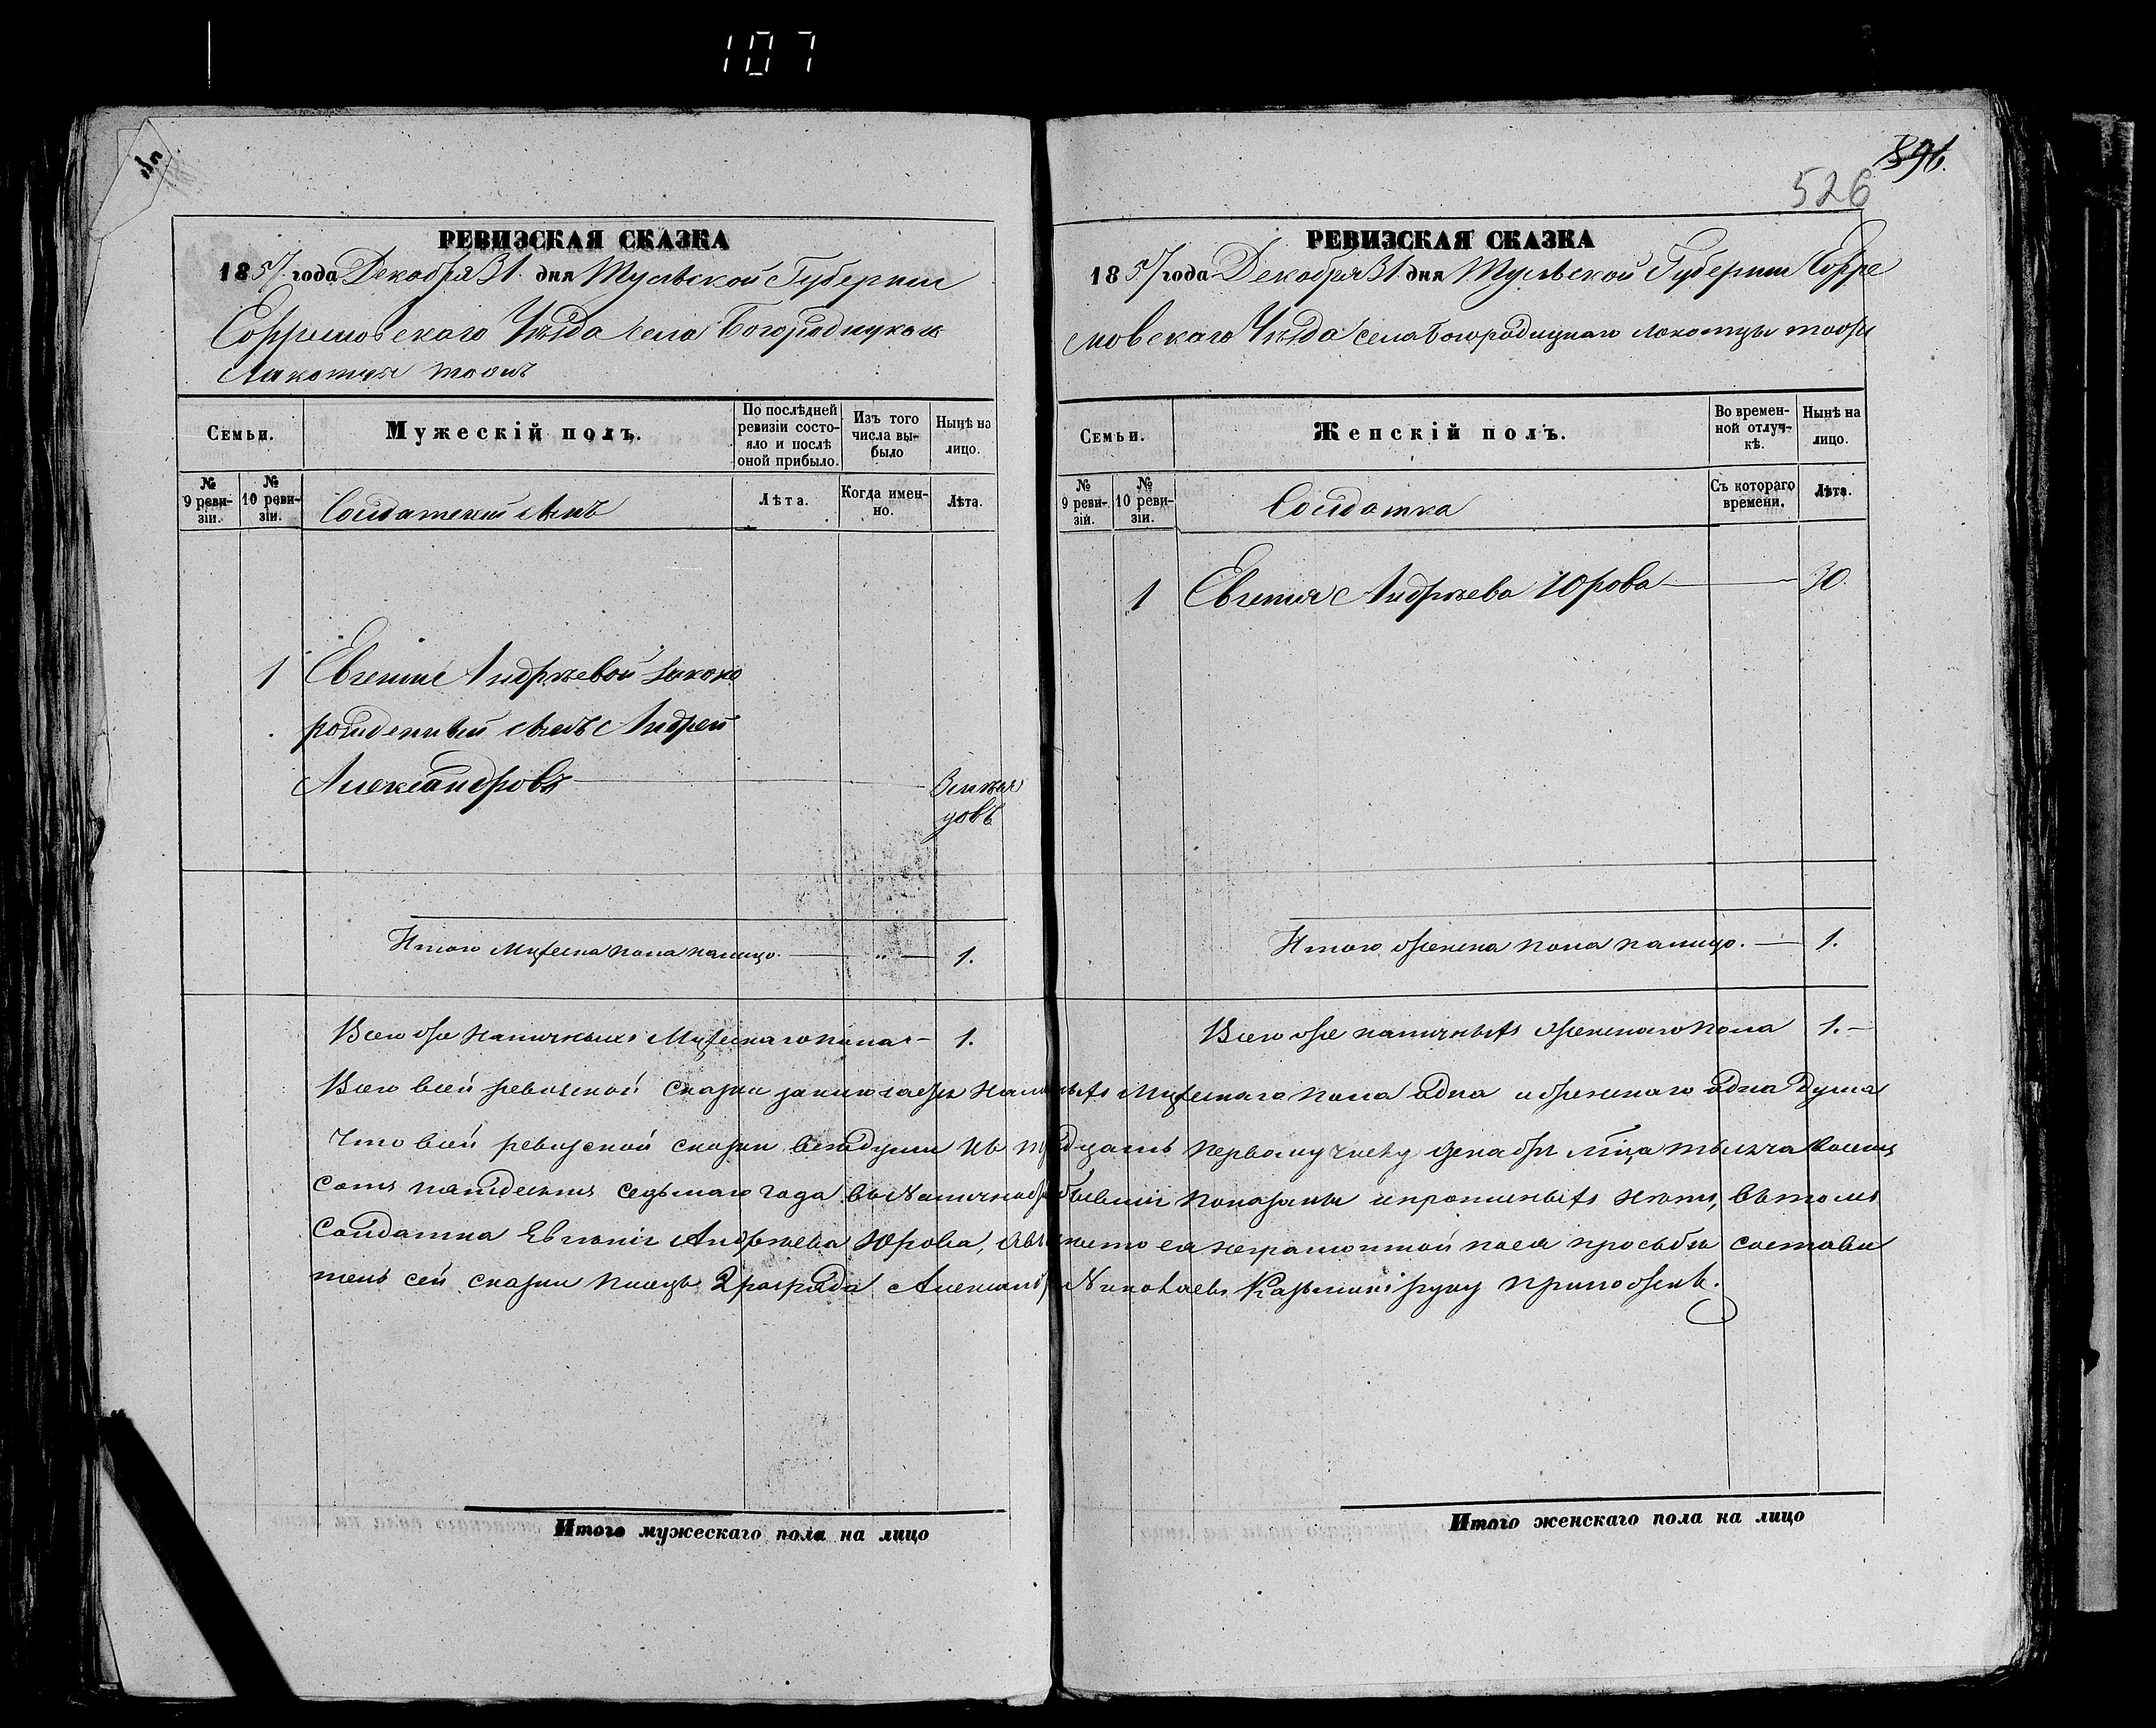 107
896.
526
РЕВИЗСКАЯ СКАЗКА
1857 года Декабря 31 дня Тульской Губернии
Ефремовскаго Уѣзда села Богородицкаго
Локотцы тожъ
Семьи.
Мужескій полъ.
По послѣдней ревизіи состояло и послѣ оной прибыло.
Изъ того числа выбыло
Нынѣ на лицо.
№ 9 ревизіи.
№ 10 ревизіи.
Солдатскій сынъ
Лѣта.
Когда именно.
Лѣта.
1 Евгеніи Андрѣевой законо
рожденный сынъ Андрей
Александровъ
3 мѣся
цовъ
Итого мужеска пола налицо. — " — 1.
Всего же наличныхъ Мужескаго пола — 1.
РЕВИЗСКАЯ СКАЗКА
1857 года Декабря 31 дня Тульской Губерніи Ефре
мовскаго Уѣзда села Богородицкаго Локотцы тожъ
Семьи.
Женскій полъ.
Во временной отлучкѣ.
Нынѣ на лицо.
№ 9 ревизіи.
№ 10 ревизіи.
Солдатка
Съ котораго времени.
Лѣта.
1 Евгенія Андрѣева Юрова — 30.
Итого женска пола налицо. — 1.
Всего же наличныхъ женскаго пола 1. —
Всего всей ревизской сказки заключается наличныхъ Мужескаго пола одна и женскаго одна душа
Что всей ревизской сказки всѣ души къ тридцать первому числу Декабря мца тысяча восемь
сотъ пятьдесятъ седьмаго года въ наличности бывшіи показаны и прописныхъ нѣтъ, въ томъ
Солдатка Евгенія Андрѣева Юрова, а вмѣсто ея неграмотной по ея прозьбѣ состави
тель сей сказки писецъ 2 разряда Александръ Николаевъ руку приложилъ.
Итого мужескаго пола на лицо
Итого женскаго пола на лицо